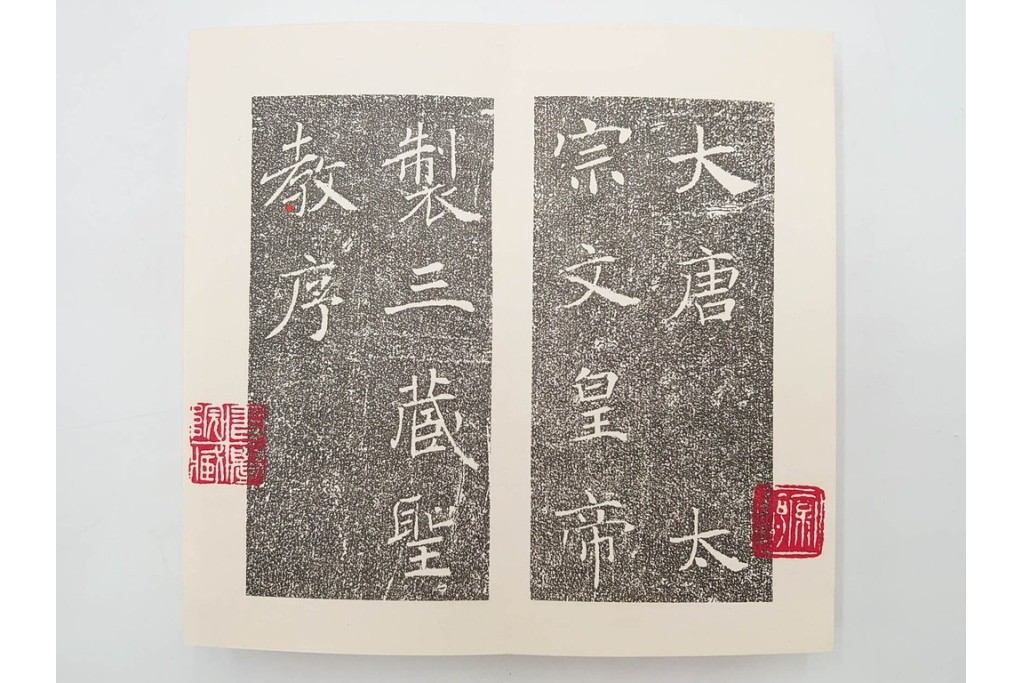 大唐太
宗文皇帝
製三藏聖
教序